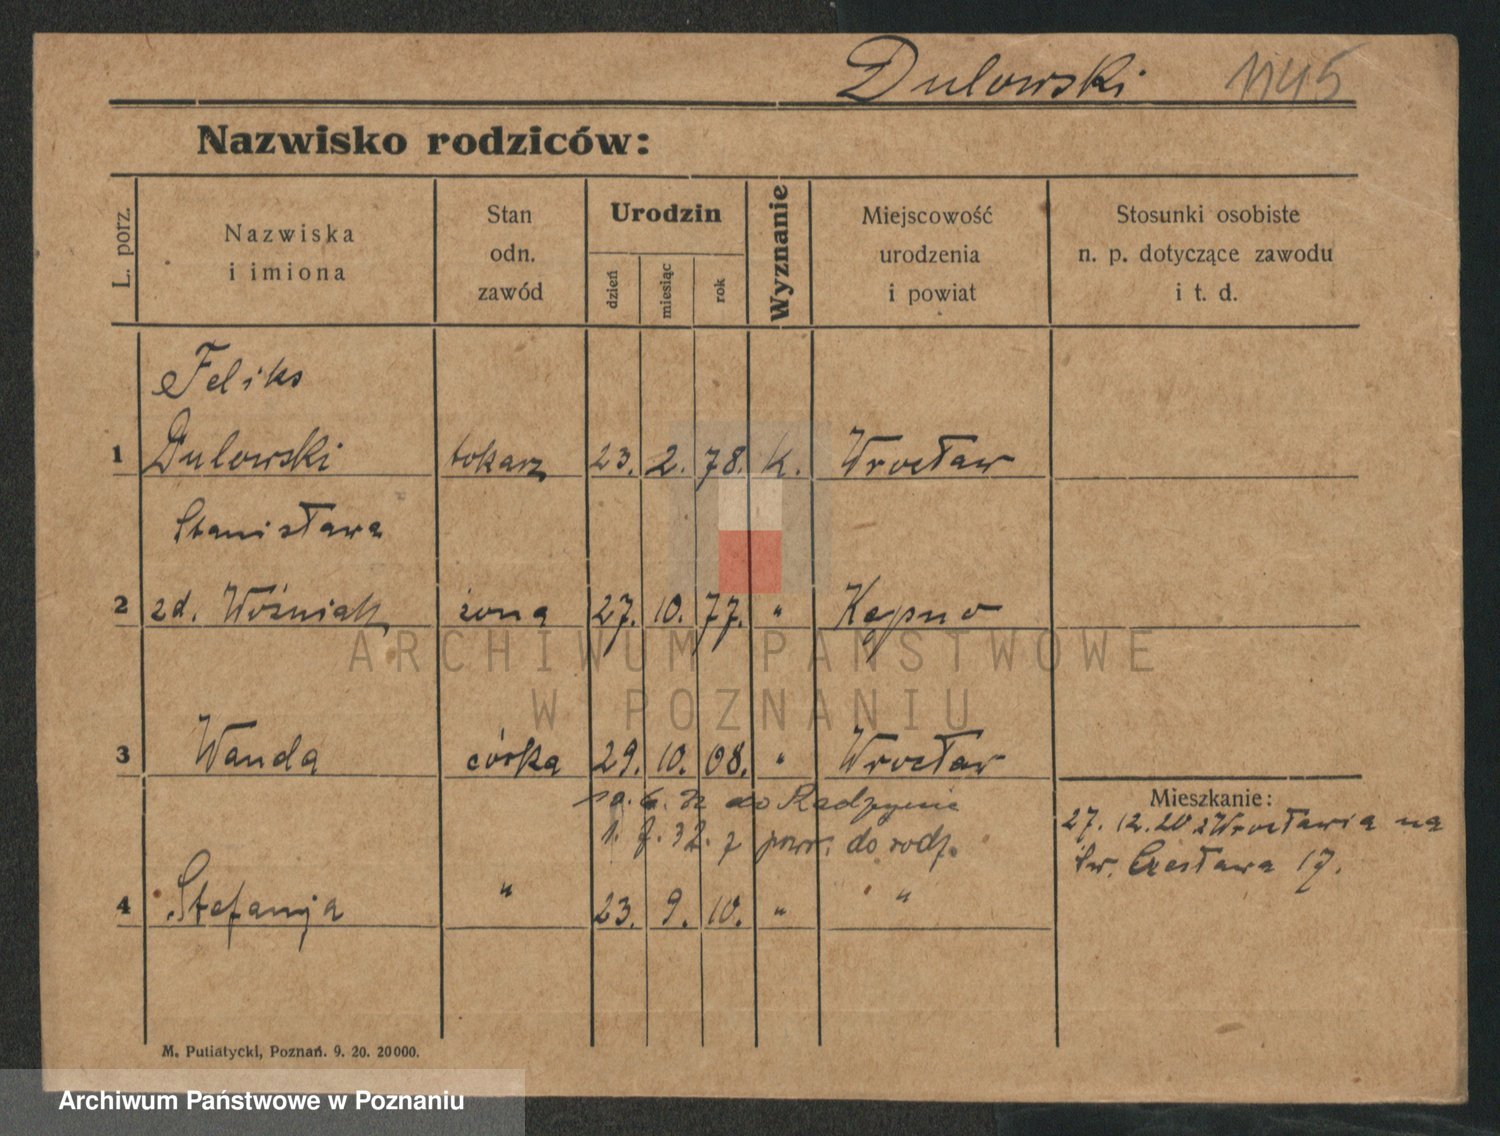 Dulowski 1145
Nazwisko rodziców:
L. porz.
Nazwiska
i imiona
Stan
odn.
zawód
Urodzin
dzień
miesiąc
rok
Wyznanie
Miejscowość
urodzenia
i powiat
Stosunki osobiste
n. p. dotyczące zawodu
i t. d.
Feliks
1 Dulowski tokarz 23. 2. 78. k. Wrocław
Stanisława
2 zd. Woźniak żona 27. 10. 77. " Kępno
3 Wanda córka 29. 10. 08. " Wrocław
6. 32 do Radzynia
1. 32. z powr. do rodz.
4 Stefanja " 23. 9. 10. " "
Mieszkanie:
27. 12. 20 z Wrocławia na
Św. Czesława 17.
M. Putiatycki, Poznań. 9. 20. 20000.
ARCHIWUM PAŃSTWOWE
W POZNANIU
Archiwum Państwowe w Poznaniu